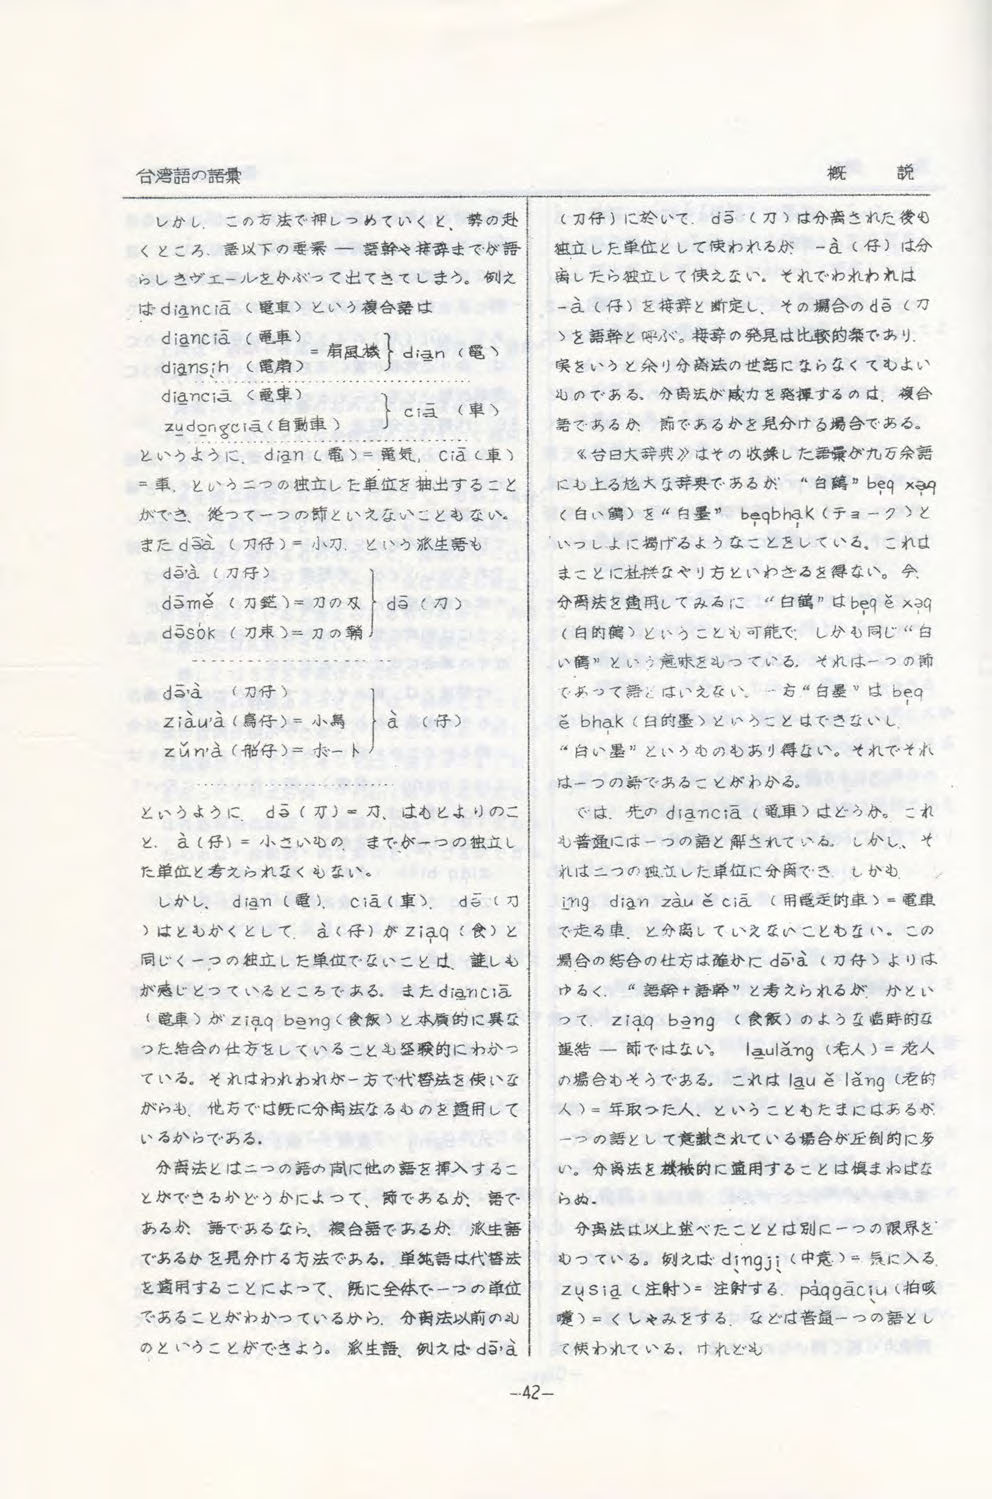 台湾語の語彙
概 説
しかし、この方法で押しつめていくと、勢の赴
くところ、語以下の要素 — 語幹や接辞までが語
らしきヴェールをかぶって出てきてしまう。例え
ば diạnciā（電車）という複合語は
diạnciā（電車）
diạnsịh（電扇）
= 扇風機 } diạn（電）
diạnciā（電車）
zụdọngciā（自動車）
} ciā（車）
というように、diạn（電）= 電気, ciā（車）
= 車、という二つの独立した単位を抽出すること
ができ、従って一つの節といえないこともない。
また dəˉà（刀仔）= 小刀、という派生語も
dəˉ'à（刀仔）
dəˉmě（刀鋩）= 刀の刄
dəˉsòk（刀束）= 刀の鞘
} dəˉ（刀）
dəˉ'à（刀仔）
ziàu'à（鳥仔）= 小鳥
zǔn'à（船仔）= ボート
} à（仔）
というように、dəˉ（刀）= 刀、はもとよりのこ
と、à（仔）= 小さいもの、までが一つの独立し
た単位と考えられなくもない。
しかし、diạn（電）、ciā（車）、dəˉ（刀
）はともかくとして、à（仔）が ziạq（食）と
同じく一つの独立した単位でないことは、誰しも
が感じとっているところである。また diạnciā
（電車）が ziạq bə̣ng（食飯）と本質的に異な
った結合の仕方をしていることも経験的にわかっ
ている。それはわれわれが一方で代替法を使いな
がらも、他方では既に分离法なるものを適用して
いるからである。
分离法とは二つの語の間に他の語を挿入するこ
とができるかどうかによって、節であるか、語で
あるか、語であるなら、複合語であるか、派生語
であるかを見分ける方法である。単純語は代替法
を適用することによって、既に全体で一つの単位
であることがわかっているから、分离法以前のも
のということができよう。派生語、例えば dəˉ'à
（刀仔）に於いて、dəˉ（刀）は分离された後も
独立した単位として使われるが、-à（仔）は分
离したら独立して使えない。それでわれわれは
-à（仔）を接辞と断定し、その場合の dəˉ（刀
）を語幹と呼ぶ。接辞の発見は比較的楽であり、
実をいうと余り分离法の世話にならなくてもよい
ものである。分离法が威力を発揮するのは、複合
語であるか、節であるかを見分ける場合である。
《台日大辞典》はその収録した語彙が九万余語
にも上る尨大な辞典であるが、“白鶴” bẹq xə̣q
（白い鶴）を“白墨” bẹqbhạk（チョーク）と
いっしょに掲げるようなことをしている。これは
まことに杜撰なやり方といわざるを得ない。今、
分离法を適用してみるに、“白鶴”は bẹq ě xə̣q
（白的鶴）ということも可能で、しかも同じ“白
い鶴”という意味をもっている。それは一つの節
であって語とはいえない。一方“白墨”は bẹq
ě bhạk（白的墨）ということはできないし、
“白い墨”というものもあり得ない。それでそれ
は一つの語であることがわかる。
では、先の diạnciā（電車）はどうか。これ
も普通には一つの語と解されている。しかし、そ
れは二つの独立した単位に分离でき、しかも、
ịng diạn zàu ě ciā（用電走的車）= 電車
で走る車、と分离していえないこともない。この
場合の結合の仕方は確かに dəˉ'à（刀仔）よりは
ゆるく、“語幹+語幹”と考えられるが、かとい
って、ziạq bə̣ng（食飯）のような臨時的な
連結 — 節ではない。lạulǎng（老人）= 老人
の場合もそうである。これは lạu ě lǎng（老的
人）= 年取った人、ということもたまにはあるが
一つの語として意識されている場合が圧倒的に多
い。分离法を機械的に適用することは慎まねばな
らぬ。
分离法は以上述べたこととは別に一つの限界を
もっている。例えば dịngjị（中意）= 気に入る、
zụsiạ（注射）= 注射する、pàqgāciụ（拍咳
嚏）= くしゃみをする、などは普通一つの語とし
て使われている。けれども
—42—